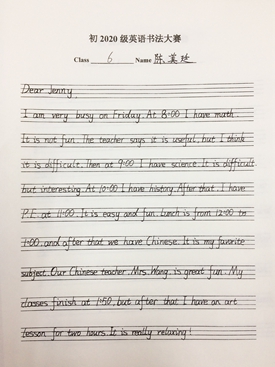 初2020级英语书法大赛
Class 6 Name 陈
Dear Jenny,
I am very busy on Friday. At 8:00 I have math.
It is not fun. The teacher says it is useful, but I think
it is difficult. Then at 9:00 I have science. It is difficult
but interesting. At 10:00 I have history. After that, I have
P.E. at 11:00. It is easy and fun. Lunch is from 12:00 to
1:00, and after that we have Chinese. It is my favorite
subject. Our Chinese teacher, Mrs. Wang, is great fun. My
classes finish at 1:50, but after that I have an art
lesson for two hours. It is really relaxing!